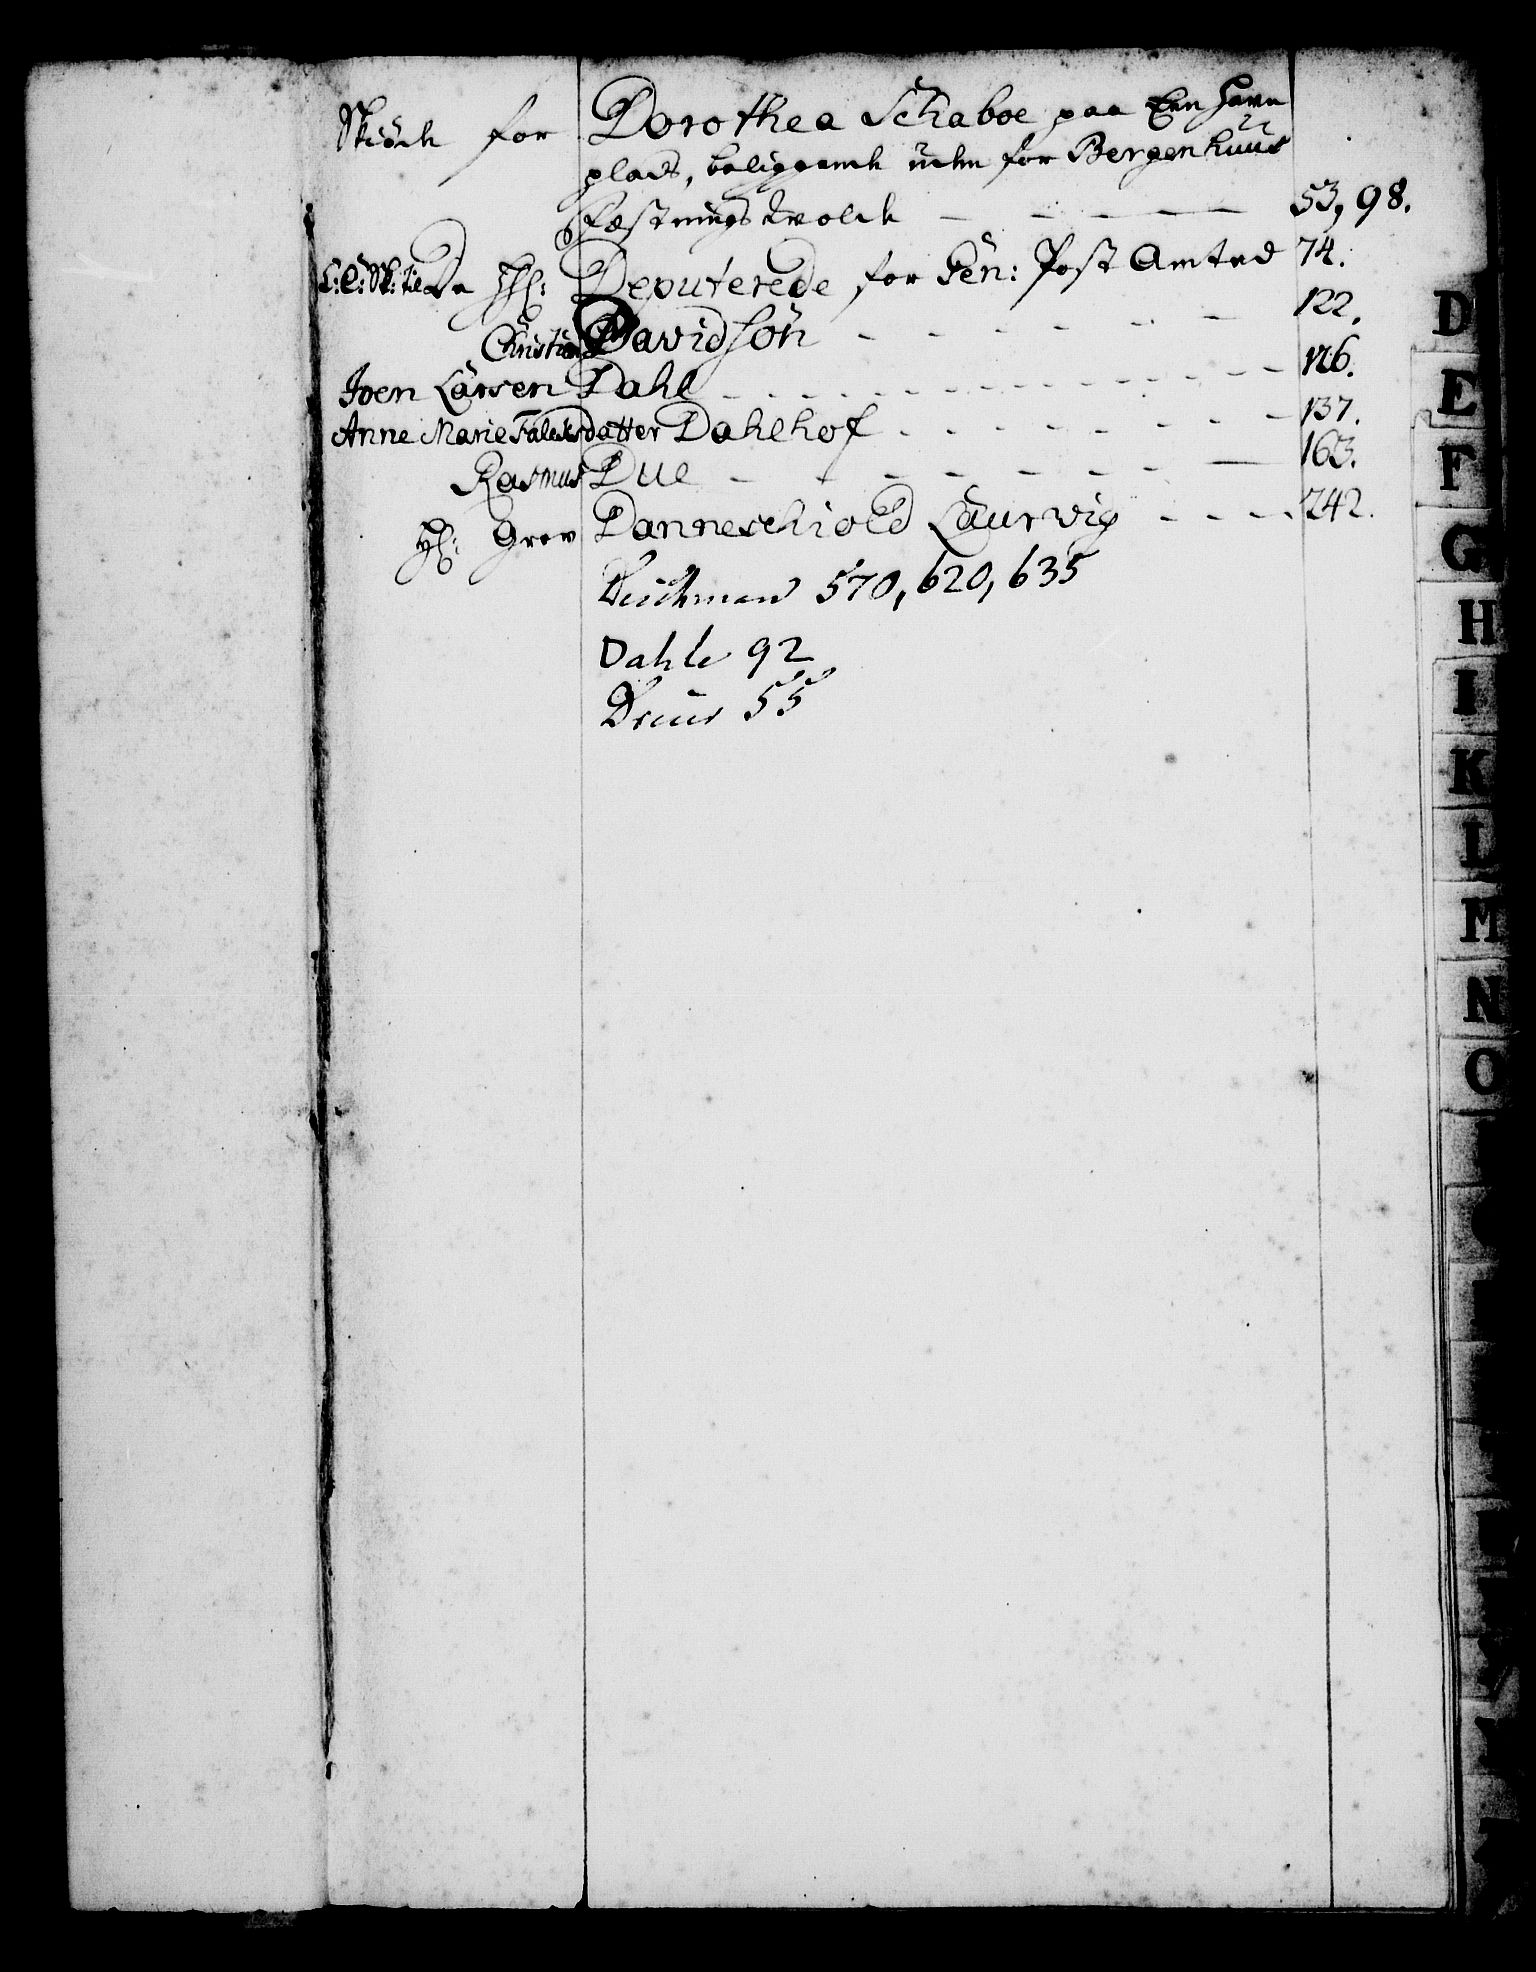 Skiöde for Dorothea Schaboe paa Een Have
plads, beliggende uden for Bergenhuus
Fæstnings
De HH: Deputerede for Gen: Post Amtet 74.
Christian Davidsön - - - - - - 122.
Joen Larsen Dahl - - - - - - 126.
Anne Marie Falcksdatter Dahlhof - - - - - - 137.
Rasmus Due - - - - - - 163.
Hr: Grev Danneschiold Laurwig - - - - 242.
Deichman 570, 620, 635
Dahle 92
55
53, 98.
D
E
F
G
H
I
K
L
M
N
O